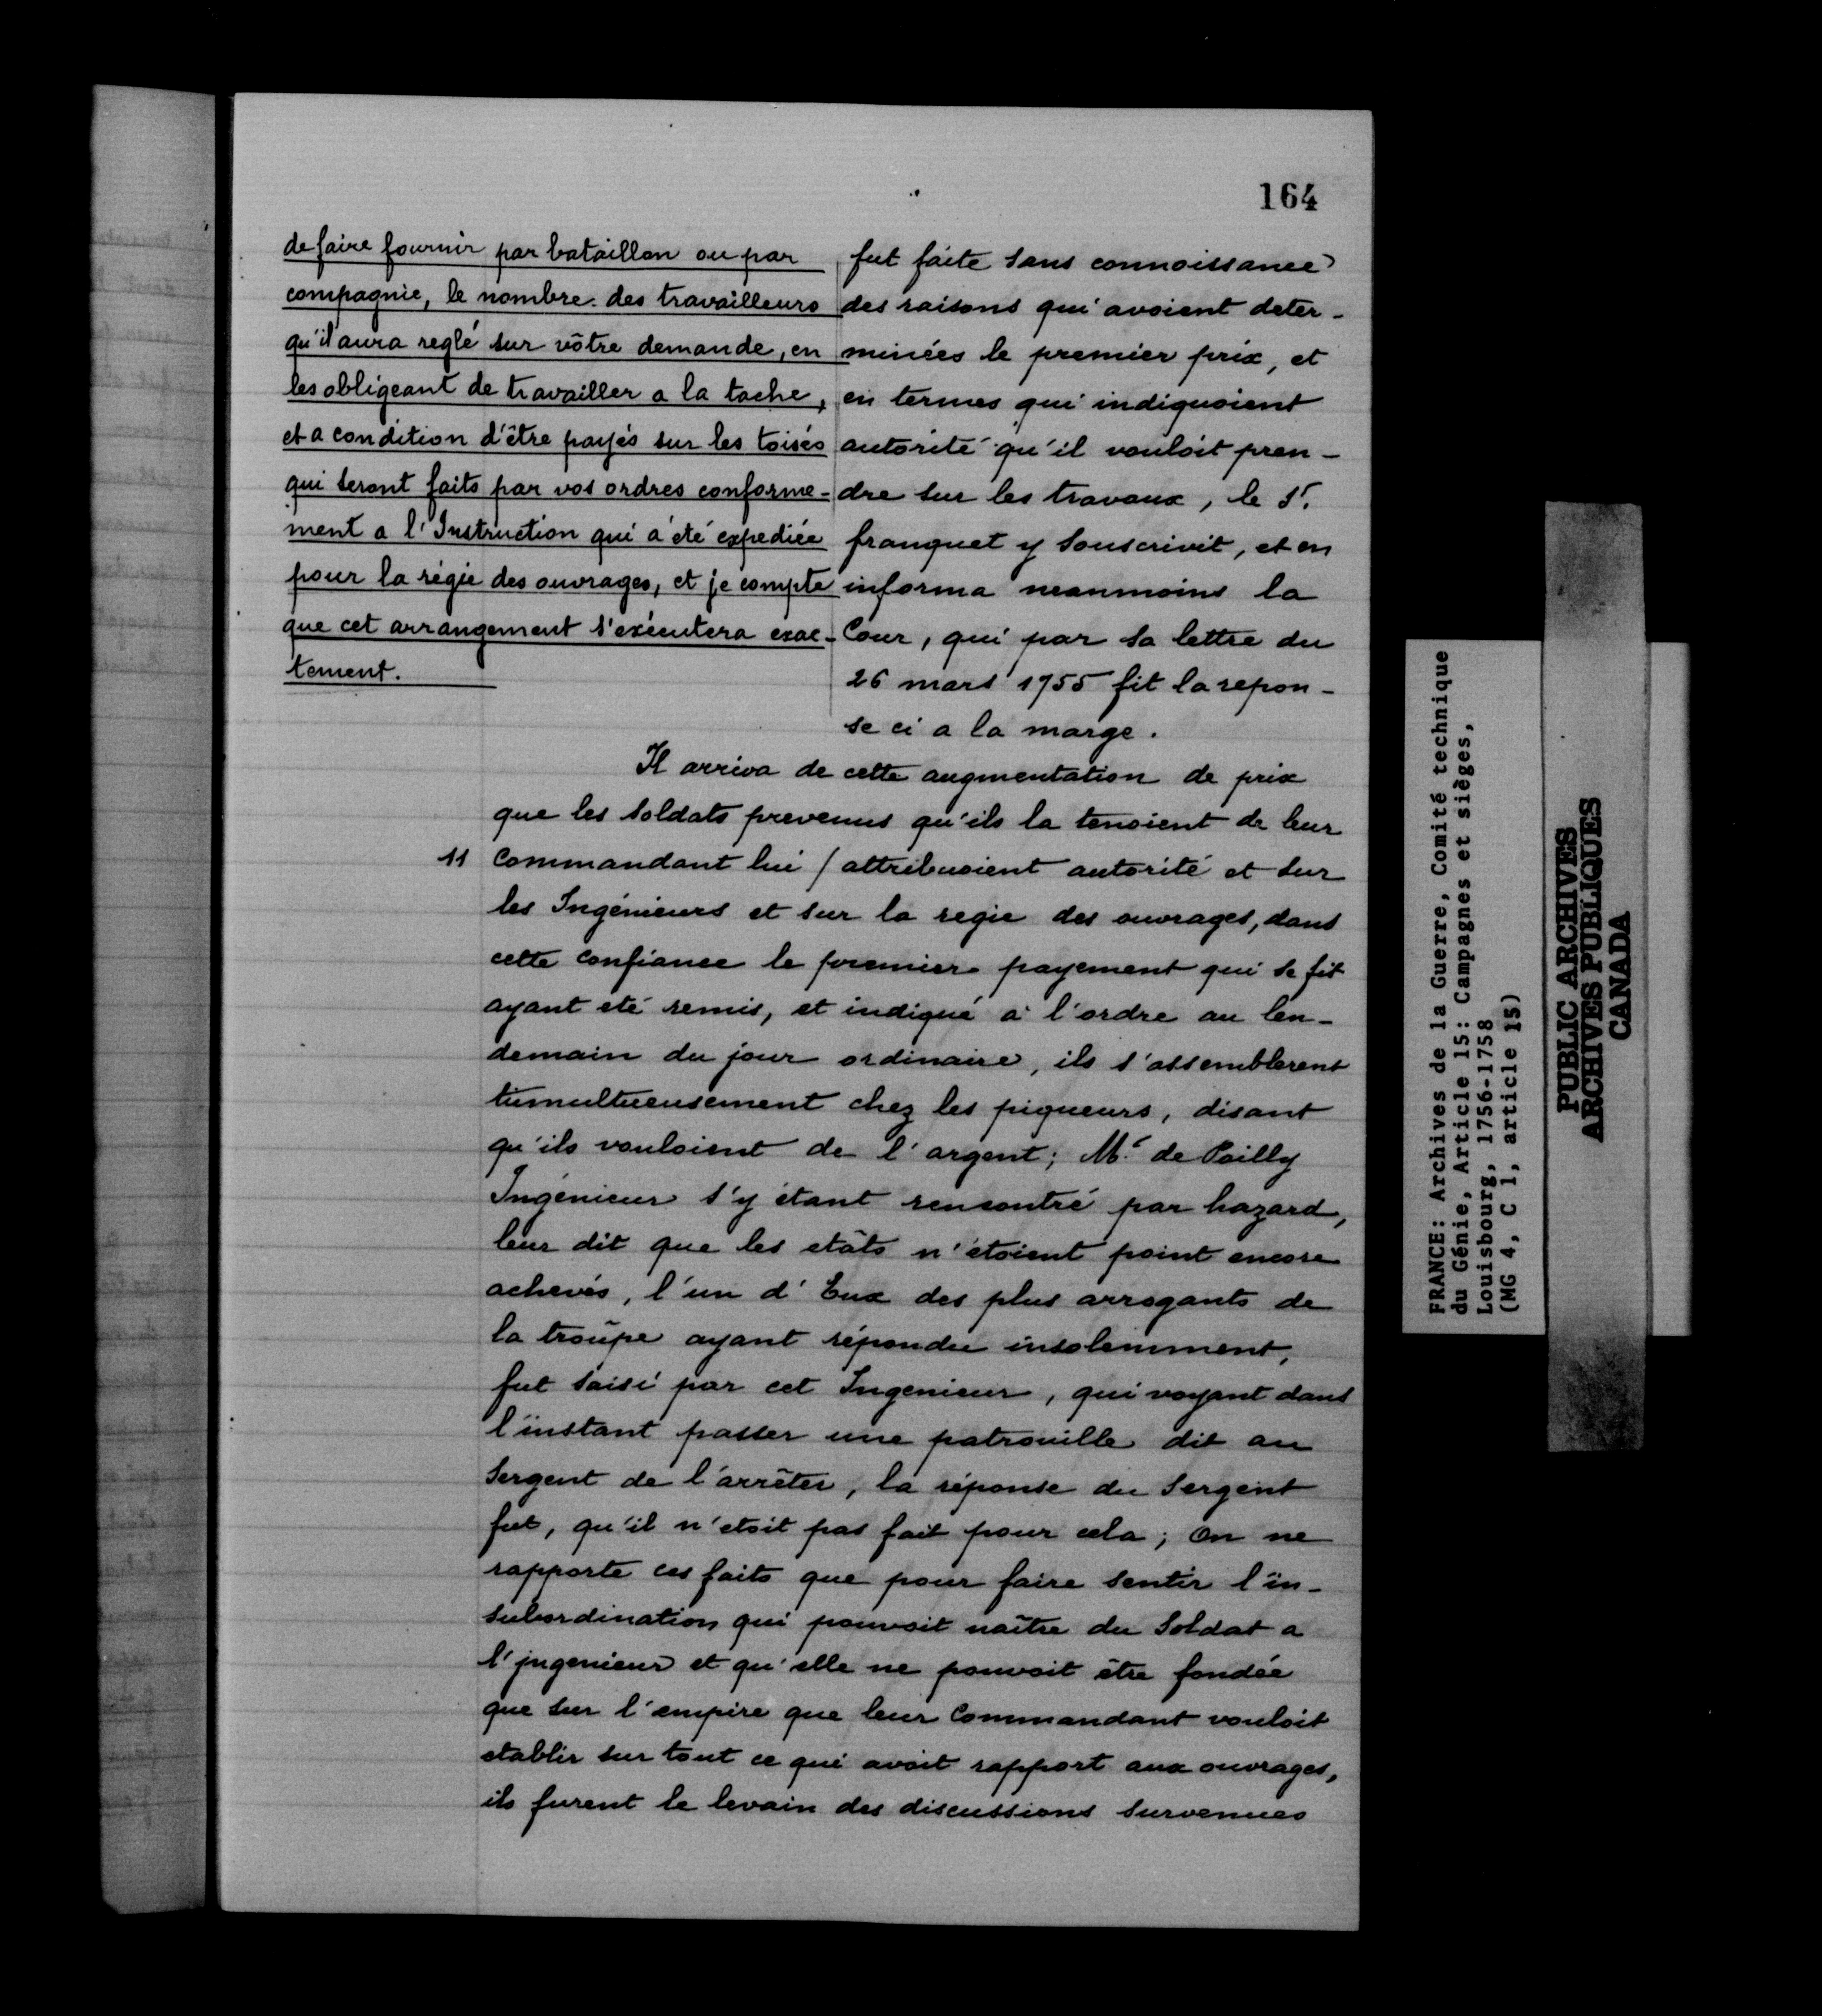 164
de faire fournir par bataillon ou par
compagnie, le nombre des travailleurs
qu'il aura reglé sur vôtre demande, en
les obligeant de travailler a la tache,
et a condition d'être payés sur les toisés
qui seront faits par vos ordres conforme-
ment a l'Instruction qui a été expediée
pour la régie des ouvrages, et je compte
que cet arrangement s'exécutera exac-
tement.
fut faite sans connoissance
des raisons qui avoient deter-
minées le premier prix, et
en termes qui indiquoient
autorité qu'il vouloit pren-
dre sur les travaux, le Sr.
franquet y souscrivit, et en
informa neanmoins la
Cour, qui par sa lettre du
26 mars 1755 fit la repon-
se ci a la marge.
Il arriva de cette augmentation de prix
que les soldats prevenus qu'ils la tenoient de leur
11 Commandant lui / attribuoient autorité et sur
les Ingénieurs et sur la regie des ouvrages, dans
cette confiance le premier payement qui se fit
ayant eté remis, et indiqué a l'ordre au len-
demain du jour ordinaire, ils s'assemblerent
tumultueusement chez les piqueurs, disant
qu'ils vouloient de l'argent; Mr. de Poilly
Ingénieur s'y étant rencontré par hazard,
leur dit que les etâts n'étoient point encore
achevés, l'un d'Eux des plus arrogants de
la troûpe ayant répondu insolemment,
fut saisi par cet Ingenieur, qui voyant dans
l'instant passer une patrouille dit au
Sergent de l'arrêter, la réponse du Sergent
fut, qu'il n'etoit pas fait pour cela; On ne
rapporte ces faits que pour faire sentir l'in-
subordination qui pouvoit naître du Soldat a
l'jngenieur et qu'elle ne pouvoit être fondée
que sur l'empire que leur Commandant vouloit
etablir sur tout ce qui avoit rapport aux ouvrages,
ils furent le levain des discussions survenues
FRANCE: Archives de la Guerre, Comité technique
du Génie, Article 15: Campagnes et sièges,
Louisbourg, 1756-1758
(MG 4, C 1, article 15)
PUBLIC ARCHIVES
ARCHIVES PUBLIQUES
CANADA